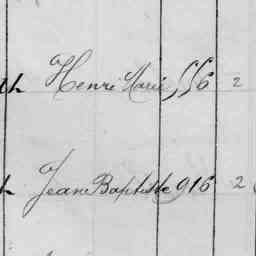 Henri Marie 556 2
Jean Baptiste 916 2